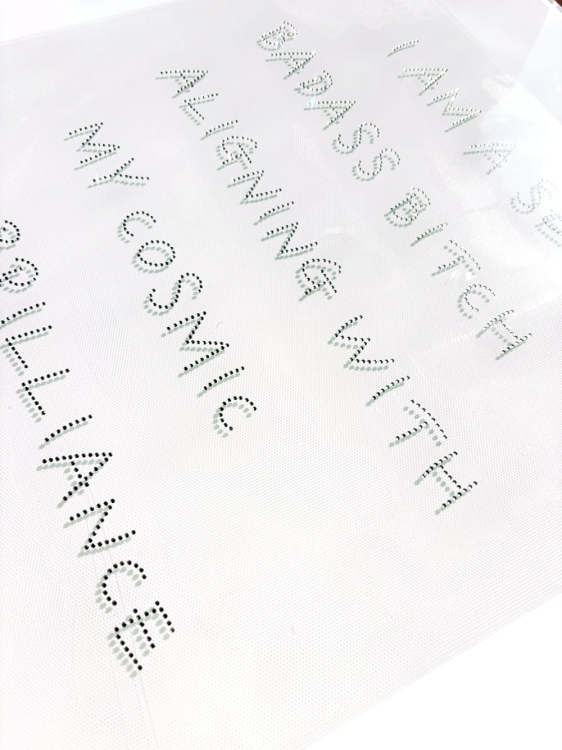 I AM A
BADASS BITCH
ALIGNING WITH
MY COSMIC
BRILLIANCE